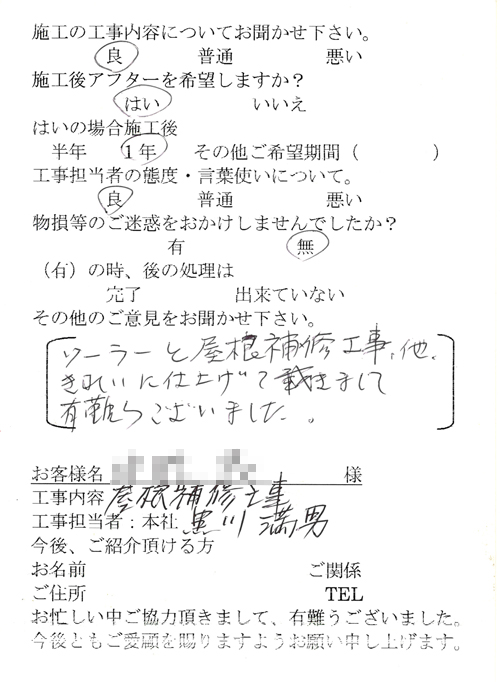 施工の工事内容についてお聞かせ下さい。
良 普通 悪い
施工後アフターを希望しますか？
はい いいえ
はいの場合施工後
半年 1年 その他ご希望期間（ ）
工事担当者の態度・言葉使いについて。
良 普通 悪い
物損等のご迷惑をおかけしませんでしたか？
有 無
（有）の時、後の処理は
完了 出来ていない
その他のご意見をお聞かせ下さい。
ソーラーと屋根補修工事、他、
きれいに仕上げて戴きまして
有難うございました。
お客様名 様
工事内容 屋根補修工事
工事担当者：本社 黒川 満男
今後、ご紹介頂ける方
お名前 ご関係
ご住所 TEL
お忙しい中ご協力頂きまして、有難うございました。
今後ともご愛顧を賜りますようお願い申し上げます。